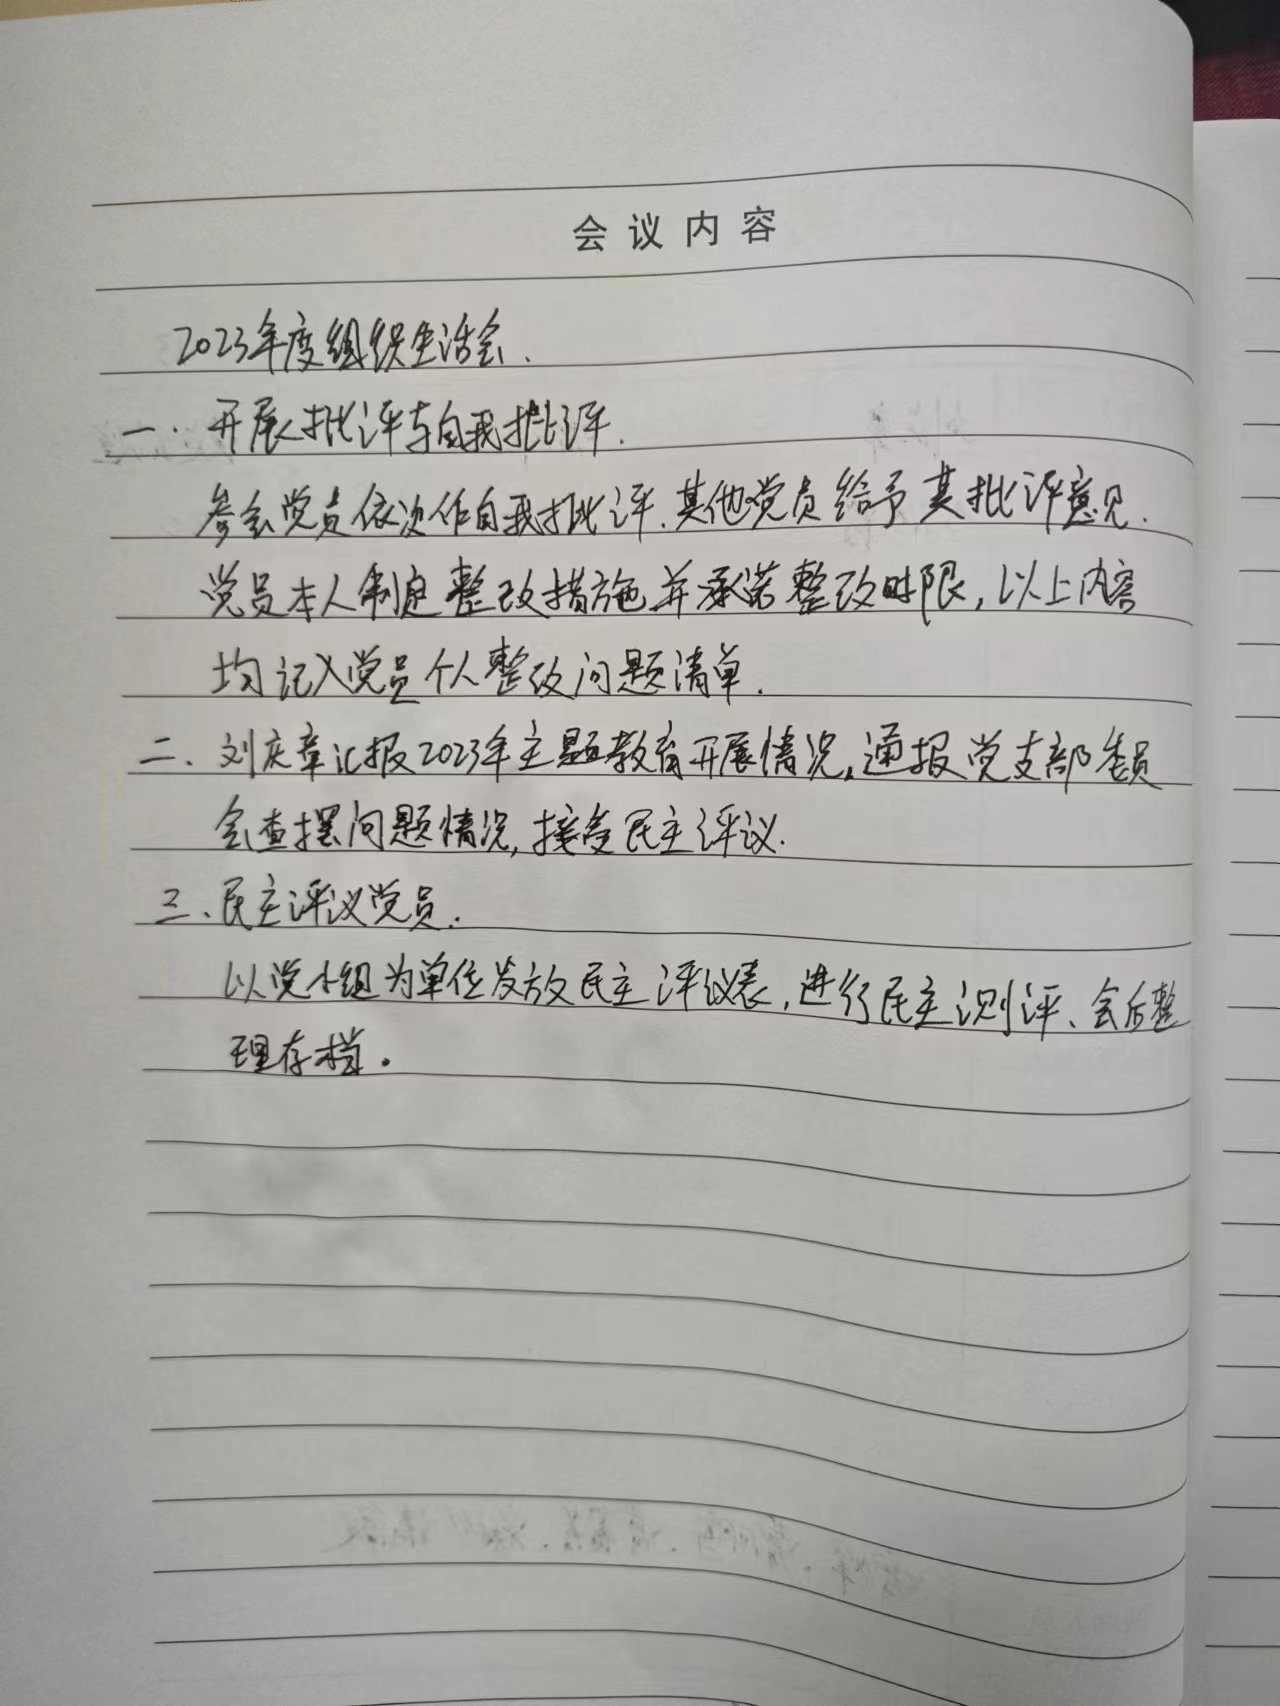 会议内容
2023年度组织生活会.
一.开展批评与自我批评.
参会党员依次作自我批评.其他党员给予其批评意见.
党员本人制定整改措施并承诺整改时限,以上内容
均记入党员个人整改问题清单.
二、刘庆章汇报2023年主题教育开展情况,通报党支部委员
会查摆问题情况,接受民主评议.
三、民主评议党员.
以党小组为单位发放民主评议表,进行民主测评、会后整
理存档。